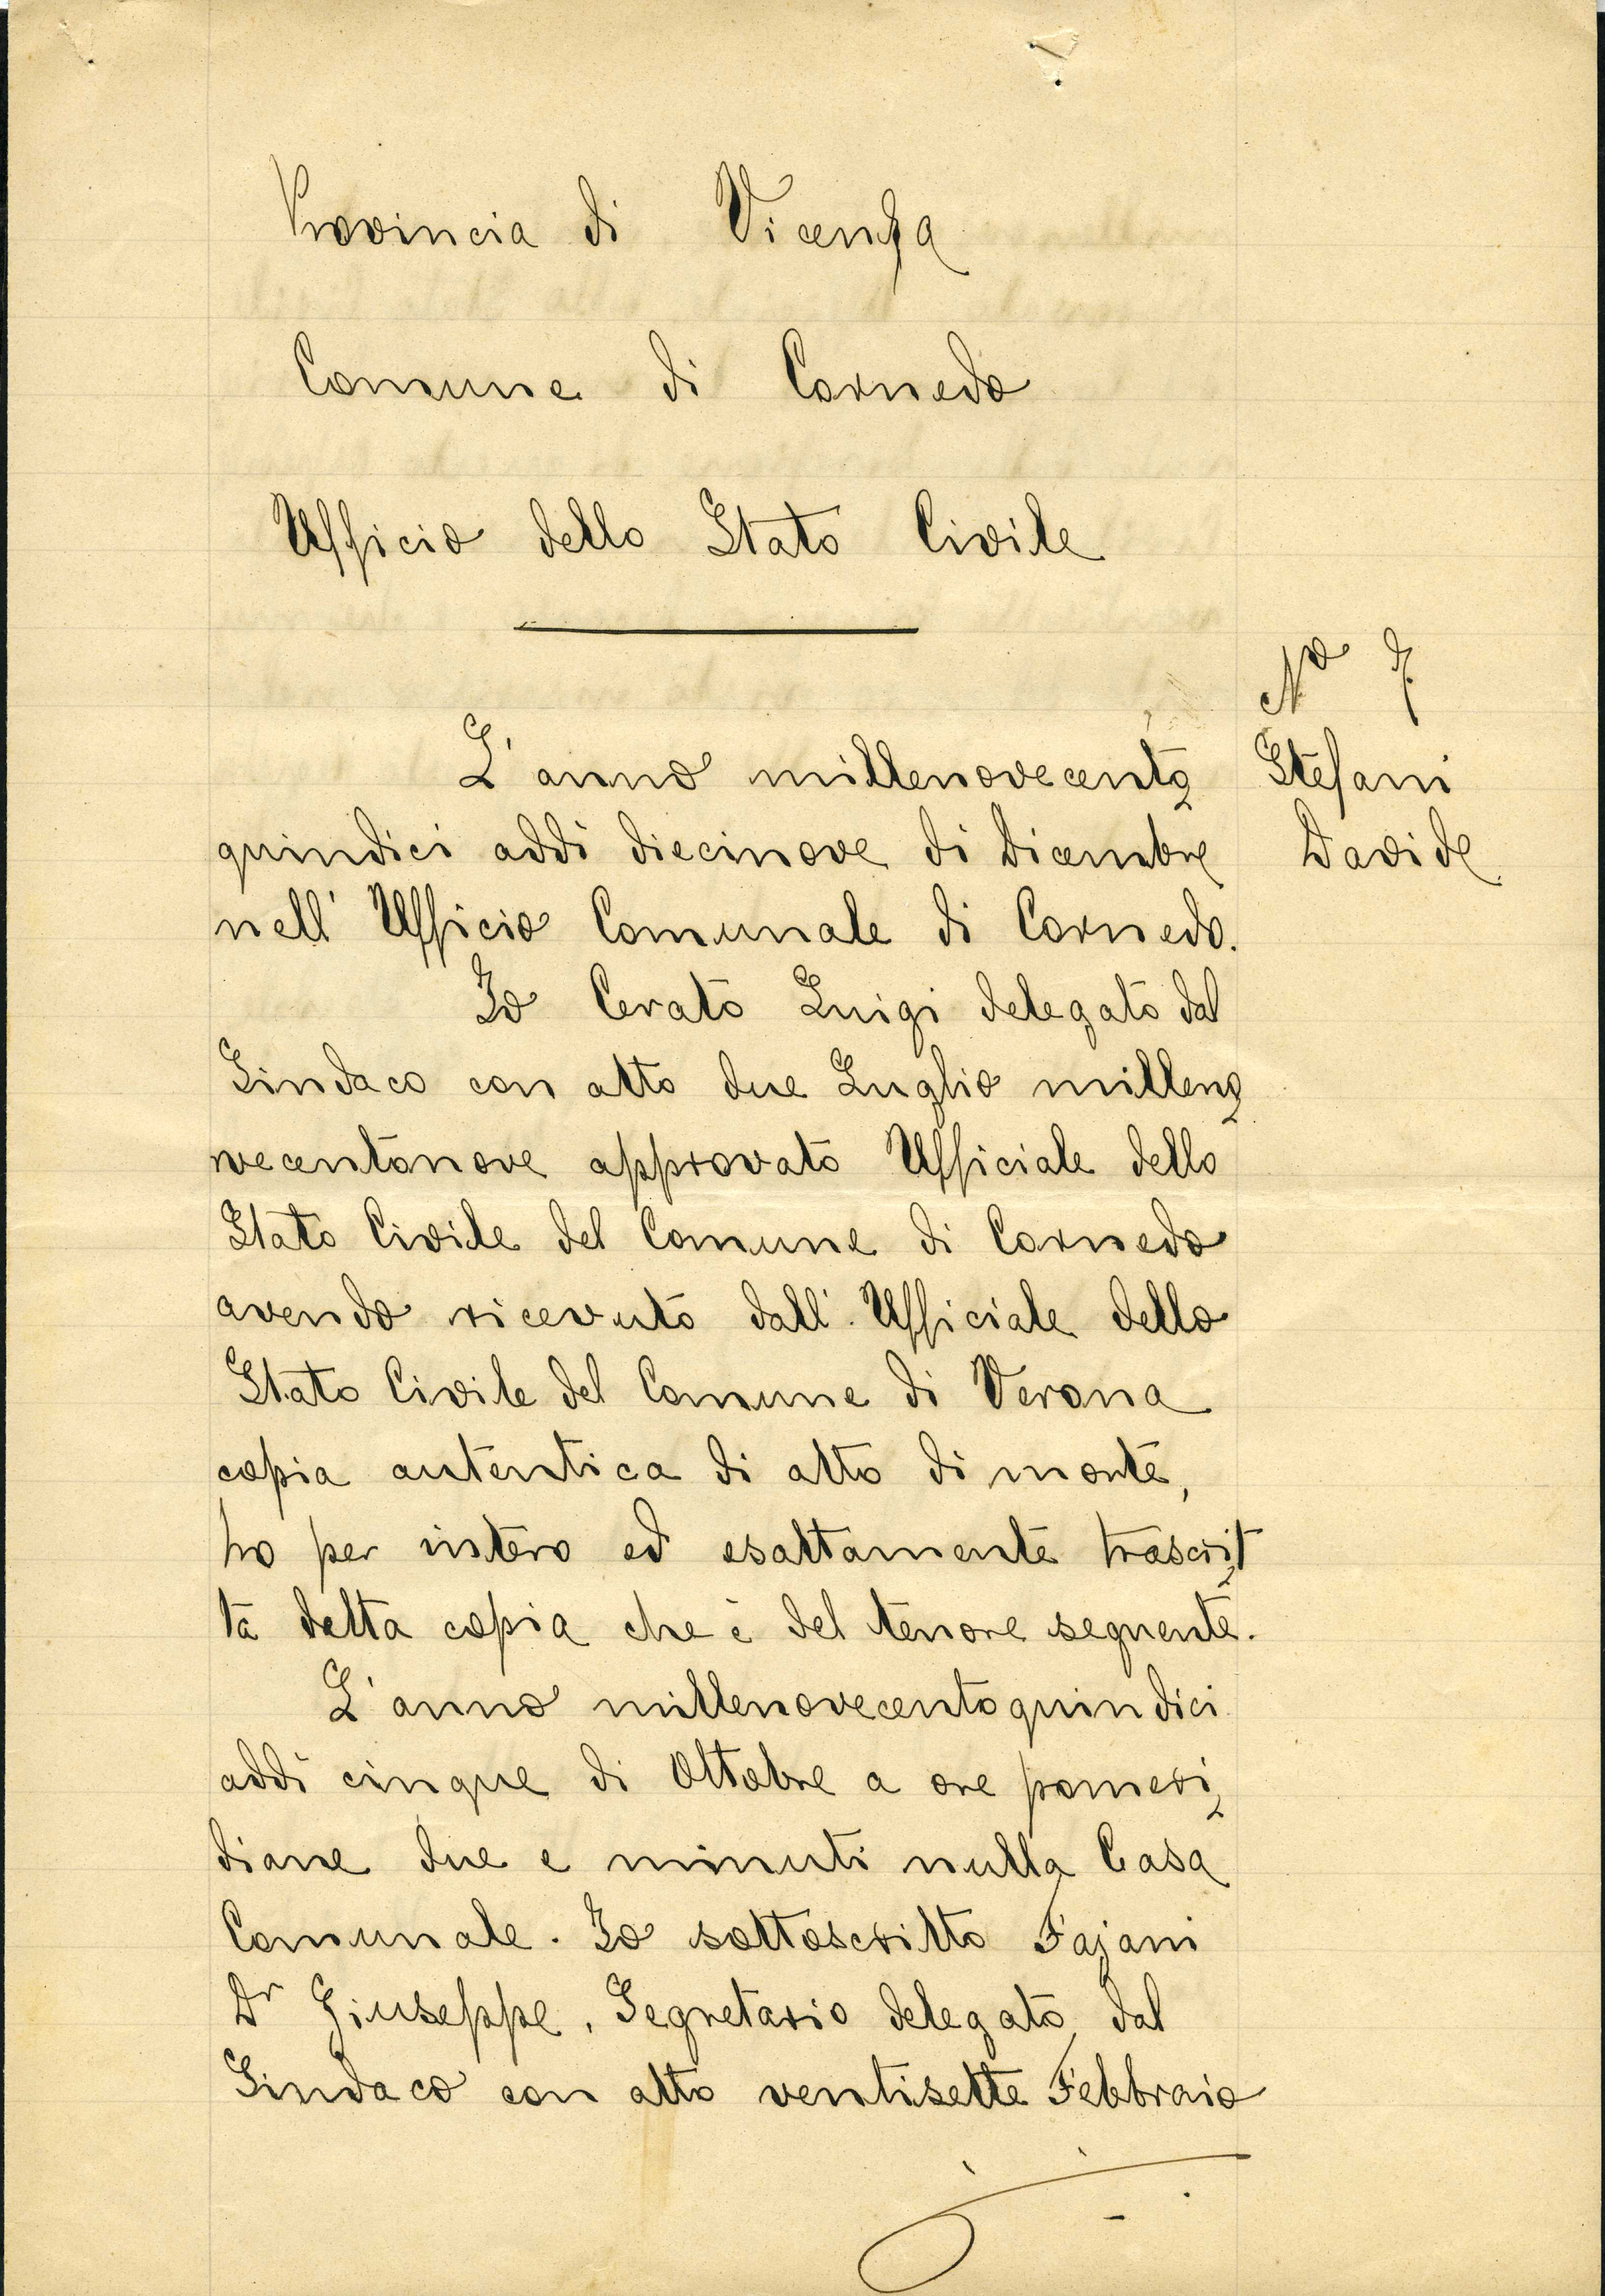 Provincia di Vicenza
Comune di Cornedo
Ufficio dello Stato Civile
Nº 7
Stefani
Davide
L'anno millenovecento
quindici addì diecinove di Dicembre
nell' Ufficio Comunale di Cornedo.
Io Cerato Luigi delegato dal
Sindaco con atto due Luglio milleno
vecentonove approvato Ufficiale dello
Stato Civile del Comune di Cornedo
avendo ricevuto dall' Ufficiale dello
Stato Civile del Comune di Verona
copia autentica di atto di morte,
ho per intero ed esattamente trascrit
ta detta copia che è del tenore seguente.
L'anno millenovecentoquindici
addì cinque di Ottobre a ore pomeri
diane due e minuti nulla Casa
Comunale. Io sottoscritto Fajani
Dr Giuseppe, Segretario delegato dal
Sindaco con atto ventisette Febbraio